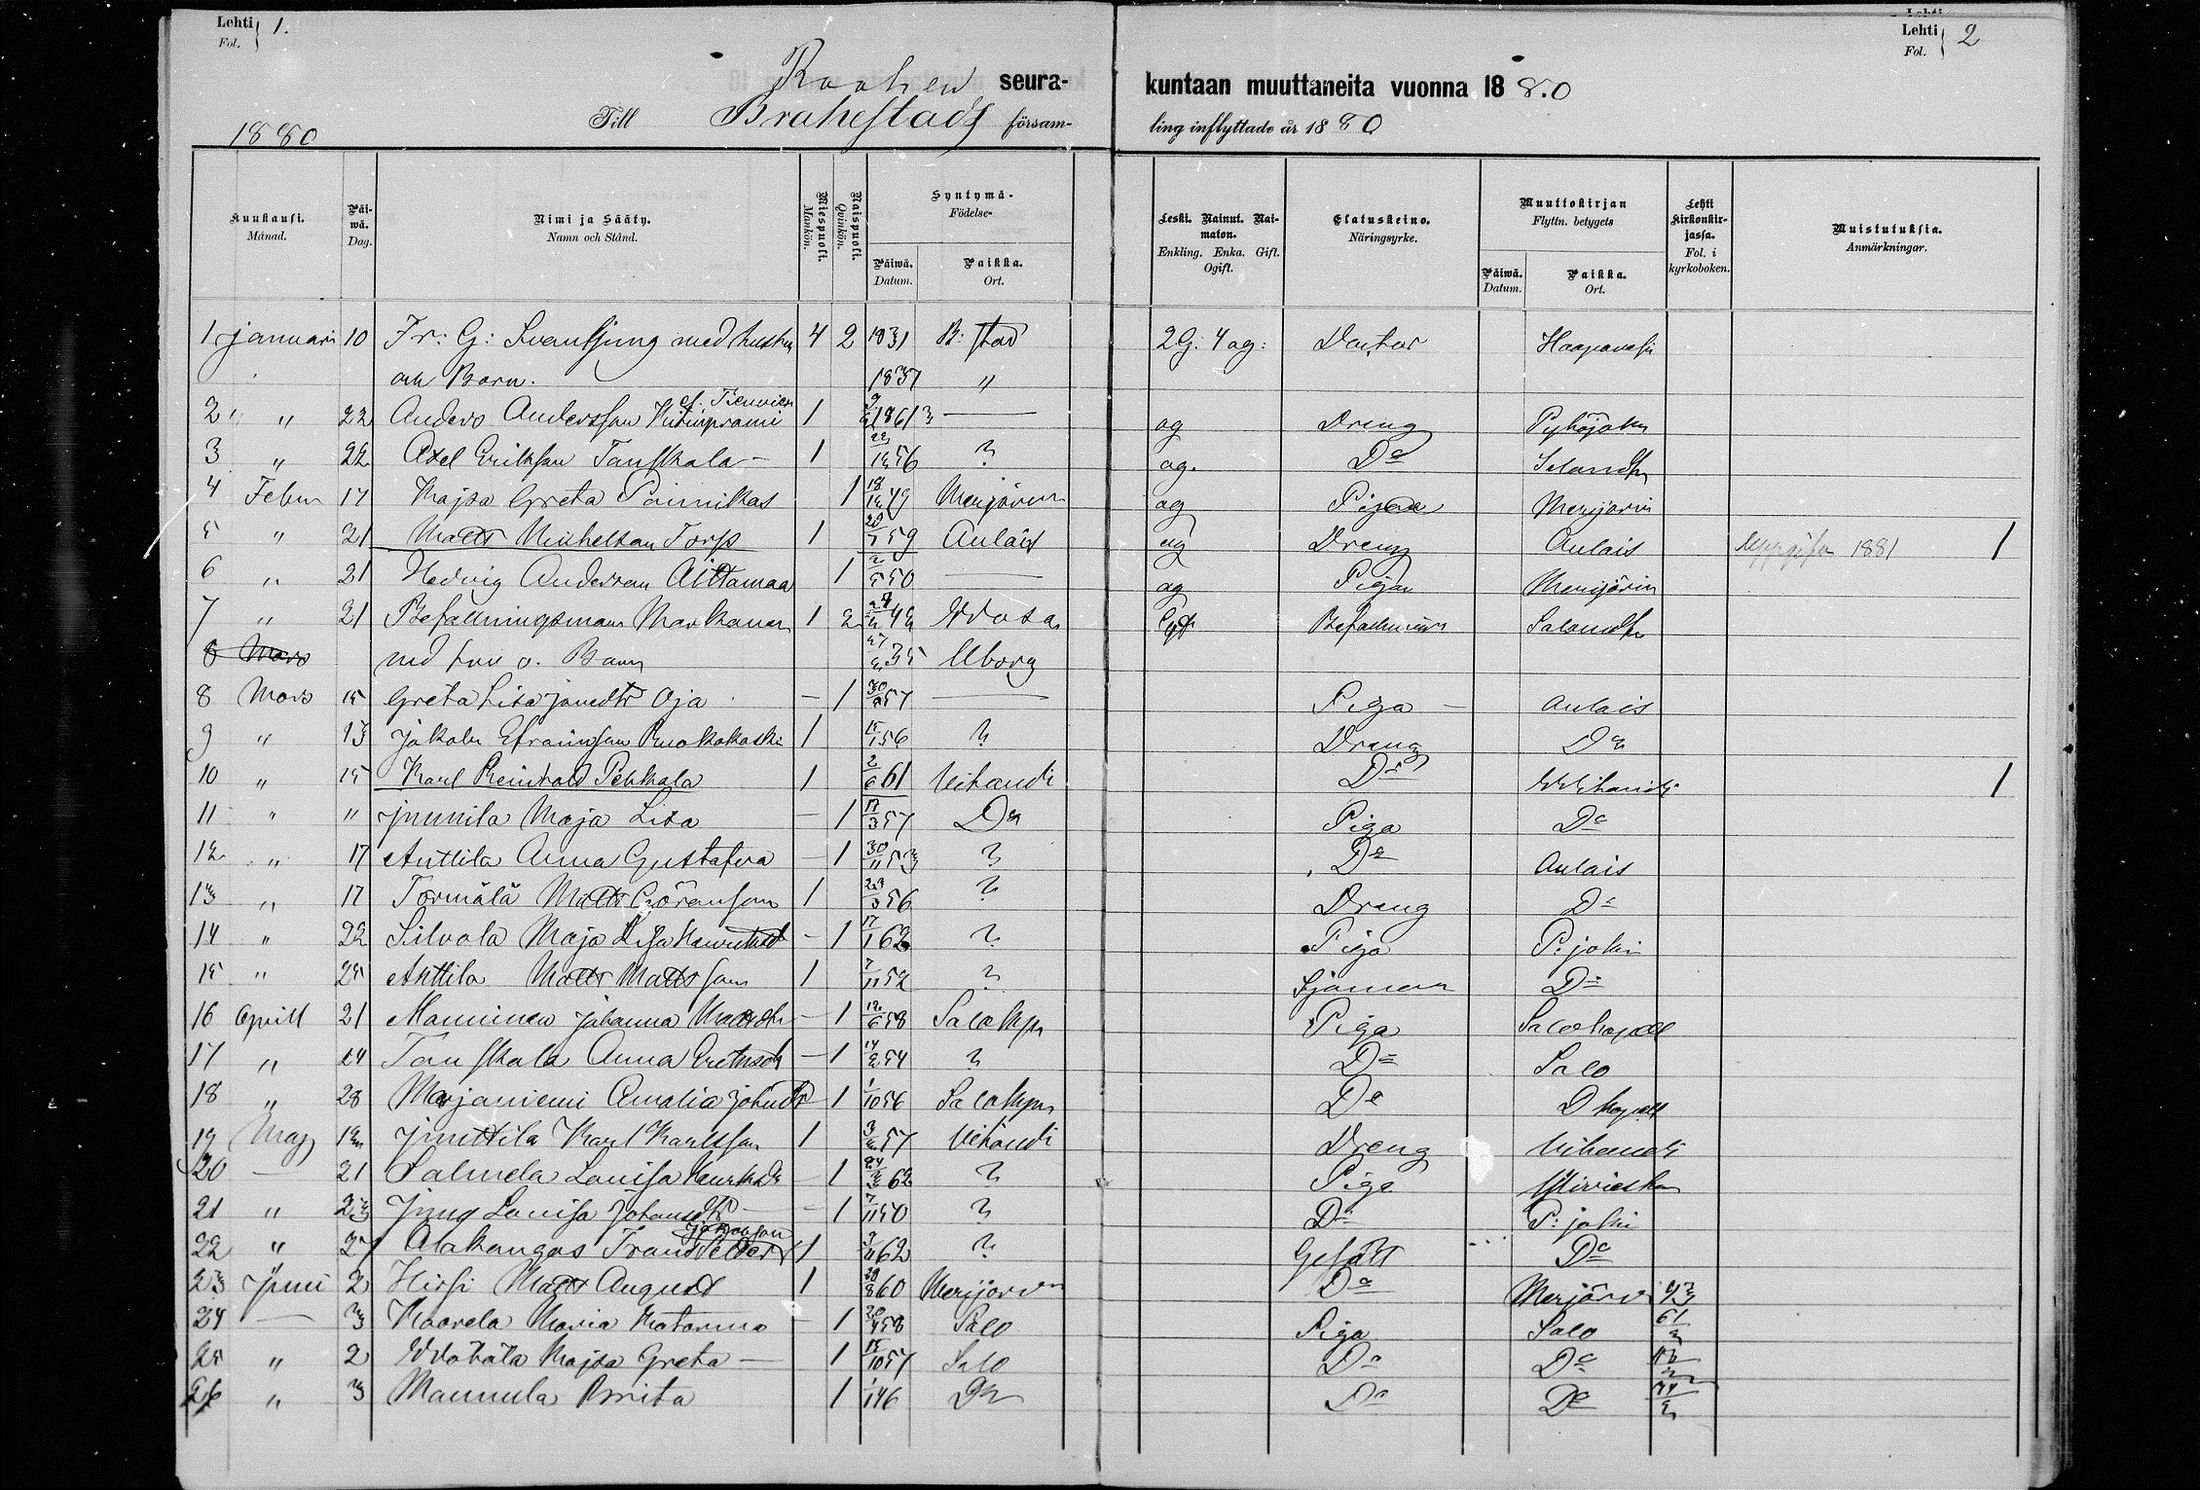 Lehti Fol. } 1.
Lehti Fol. } 2
Raahen seura- kuntaan muuttaneita vuonna 18 80
1880 Till Brahestads församling inflyttade år 18 80
Kuukausi. Månad.
Päiwä. Dag.
Nimi ja Sääty. Namn och Stånd.
Miespuoli. Mankön.
Naispuoli. Qvinkön.
Syntymä- Födelse-
Päiwä. Datum.
Paikka. Ort.
Leski. Nainut. Naimaton. Enkling. Enka. Gift. Ogift.
Elatuskeino. Näringsyrke.
Muuttokirjan Flyttn. betygets
Päiwä. Datum.
Paikka. Ort.
Lehti kirkonkirjassa. Fol. i kyrkoboken.
Muistutuksia. Anmärkningar.
1 januari 10 Fr: G: Svanljung med hustru 4 2 1831 B: stad 2 G. 4 og: Doctor Haapavesi
och Barn. 1837 "
2 " 22 Anders Andersson 1 1861 — og Dreng Pyhäjoki
3 " 22 Axel Eriksson Tanskala — 1 56 ? og. Do
4 Febru 17 Kajsa Greta 1 18 49 Merijärvi og Pigan Merijärvi
5 " 21 Matts Michelsson Torp 1 28 59 Aulais og Dreng Aulais 1881 1
6 " 21 Hedvig Anderson Aittamaa 1 50 — og Pigan Merijärvi
7 " 21 Befallningsman Markanen 1 2 Wasa Gift
8 Mars med fru o. Barn 35 Uborg
8 Mars 15 Greta Lisa Oja — 1 30 57 — Piga — Aulais
9 " 13 Jakob Efraimson 1 15/1 56 ? Dreng Do
10 " 15 Karl Reinhold Pehkala 1 2/6 61 Vihandi Do Wihandi 1
11 " " Junnila Maja Lisa — 1 17/3 57 Do Piga Do
12 " 17 Anttila Anna Gustafva — 1 30/11 53 ? Do Aulais
13 " 17 Törmälä Matts Göranson 1 23/3 56 ? Dreng Do
14 " 22 Silvola Maja Lisa — 1 17/1 62 ? Piga P: joki
15 " 25 Anttila Matts Mattsson 1 7/11 52 ? Sjöman Do
16 April 21 Manninen Johanna — 1 12/6 58 Salo Kpl Piga Salo kapell
17 " 24 Tanskala Anna — 1 14/2 54 ? Do Salo
18 " 28 Marjaniemi Amalia Johdr 1 1/10 56 Salo Kpl Do D kapell
19 Maj 12 Junttila Karl Karlsson 1 3/2 57 Vihandi Dreng Vihandi
20 — 21 Salmela Lovisa — 1 24/2 62 ? Piga Ylivieska
21 " 23 Jung Lovisa Johansdr — 1 7/11 50 ? Do P: joki
22 " 27 Alakangas Frans Jakobson 1 3/4 62 ? Gesäll Do
23 Juni 2 Hirsi Matts August 1 28/8 60 Merijärvi Do Merijärvi 43
24 — 3 Kaarela Maria Katarina — 1 20/4 58 Salo Piga Salo 61/2
25 " 2 Kajsa Greta — 1 15/10 57 Salo Do Do
26 " 3 Mannula Brita 1 1/1 46 Do Do Do 74/2